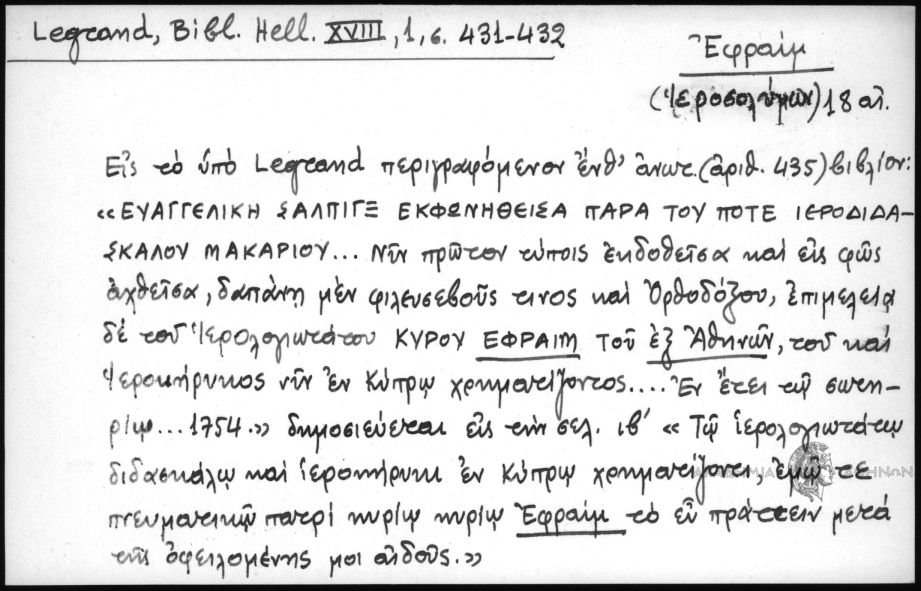 Legrand, Bibl. Hell. XVIII, 1, σ. 431-432
Ἐφραίμ
(Ἱεροσολύμων) 18 αἰ.
Εἰς τὸ ὑπὸ Legrand περιγραφόμενον ἔνθ' ἀνωτ. (ἀριθ. 435) βιβλίον:
«ΕΥΑΓΓΕΛΙΚΗ ΣΑΛΠΙΓΞ ΕΚΦΩΝΗΘΕΙΣΑ ΠΑΡΑ ΤΟΥ ΠΟΤΕ ΙΕΡΟΔΙΔΑ-
ΣΚΑΛΟΥ ΜΑΚΑΡΙΟΥ... Νῦν πρῶτον τύποις ἐκδοθεῖσα καὶ εἰς φῶς
ἀχθεῖσα, δαπάνῃ μὲν φιλευσεβοῦς τινος καὶ Ὀρθοδόξου, ἐπιμελείᾳ
δὲ τοῦ Ἱερολογιωτάτου ΚΥΡΟΥ ΕΦΡΑΙΜ ΤΟῦ ἐξ Ἀθηνῶν, τοῦ καὶ
Ἱεροκήρυκος νῦν ἐν Κύπρῳ χρηματίζοντος.... Ἐν ἔτει τῷ σωτη-
ρίῳ... 1754.» δημοσιεύεται εἰς τὴν σελ. ιβ' «Τῷ ἱερολογιωτάτῳ
διδασκάλῳ καὶ ἱεροκήρυκι ἐν Κύπρῳ χρηματίζοντι, ἐμῷ τε
πνευματικῷ πατρὶ κυρίῳ κυρίῳ Ἐφραὶμ τὸ εὖ πράττειν μετὰ
τῆς ὀφειλομένης μοι αἰδοῦς.»